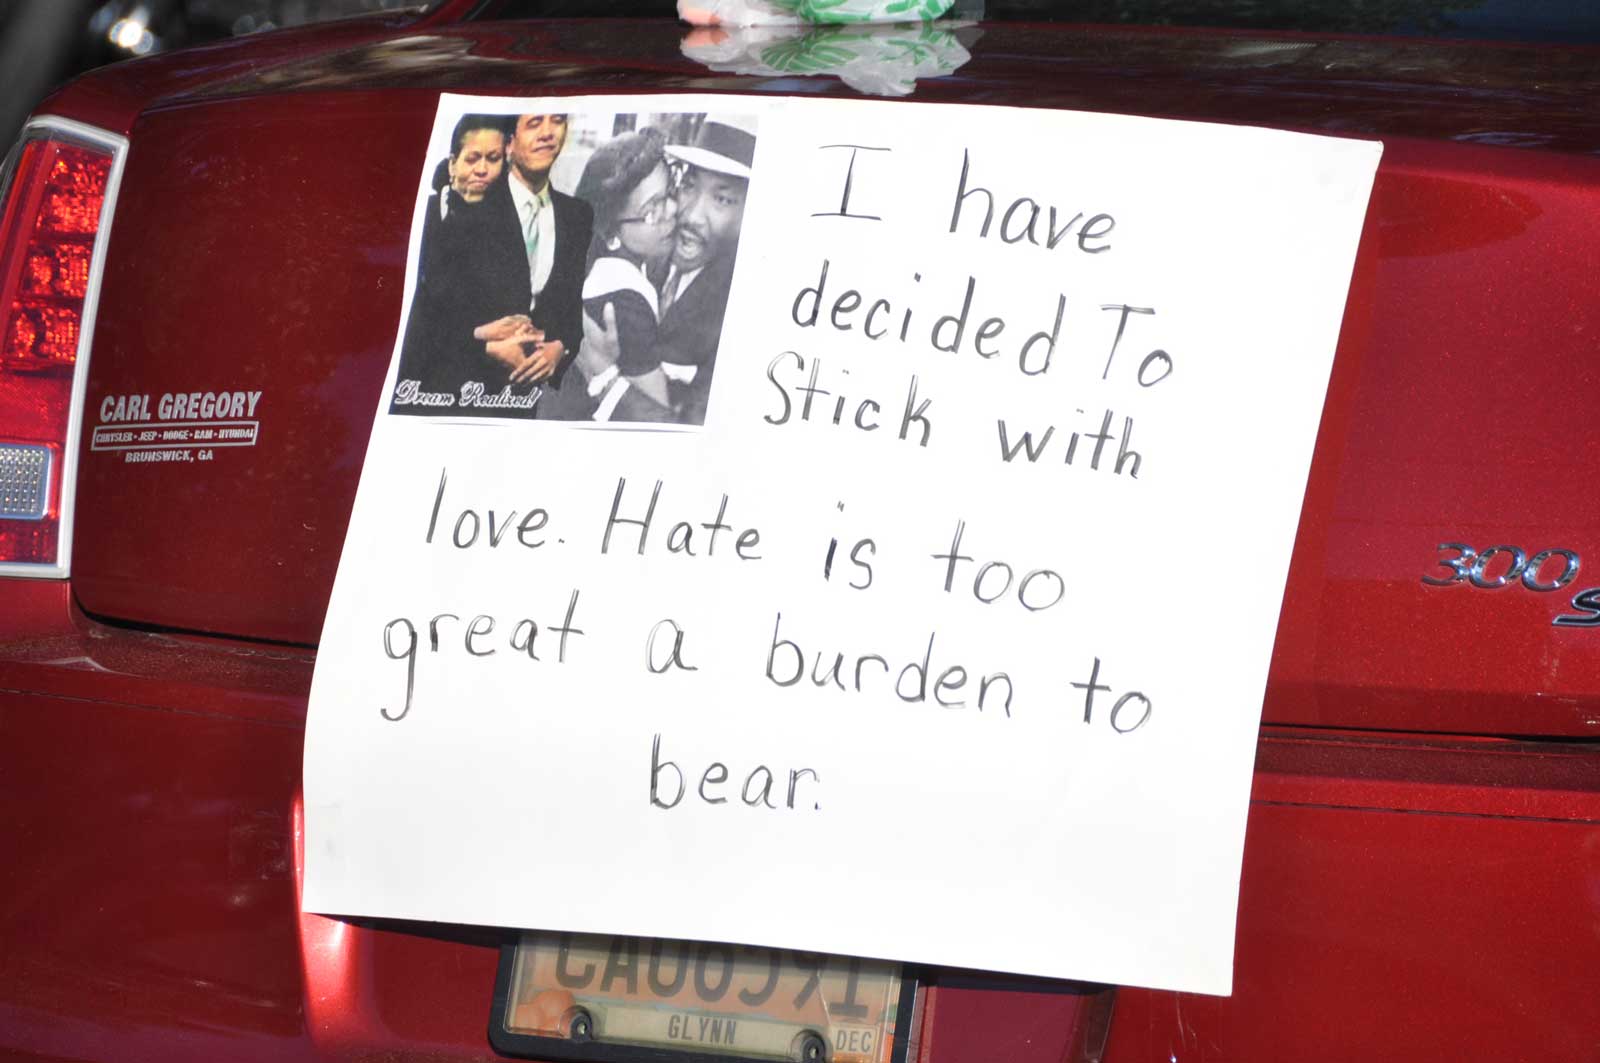 I have
decided To
Stick with
love. Hate is too
great a burden to
bear.
Dream Realized!
CARL GREGORY
CHRYSLER • JEEP • DODGE • RAM • HYUNDAI
BRUNSWICK, GA
300
S
GLYNN
DEC